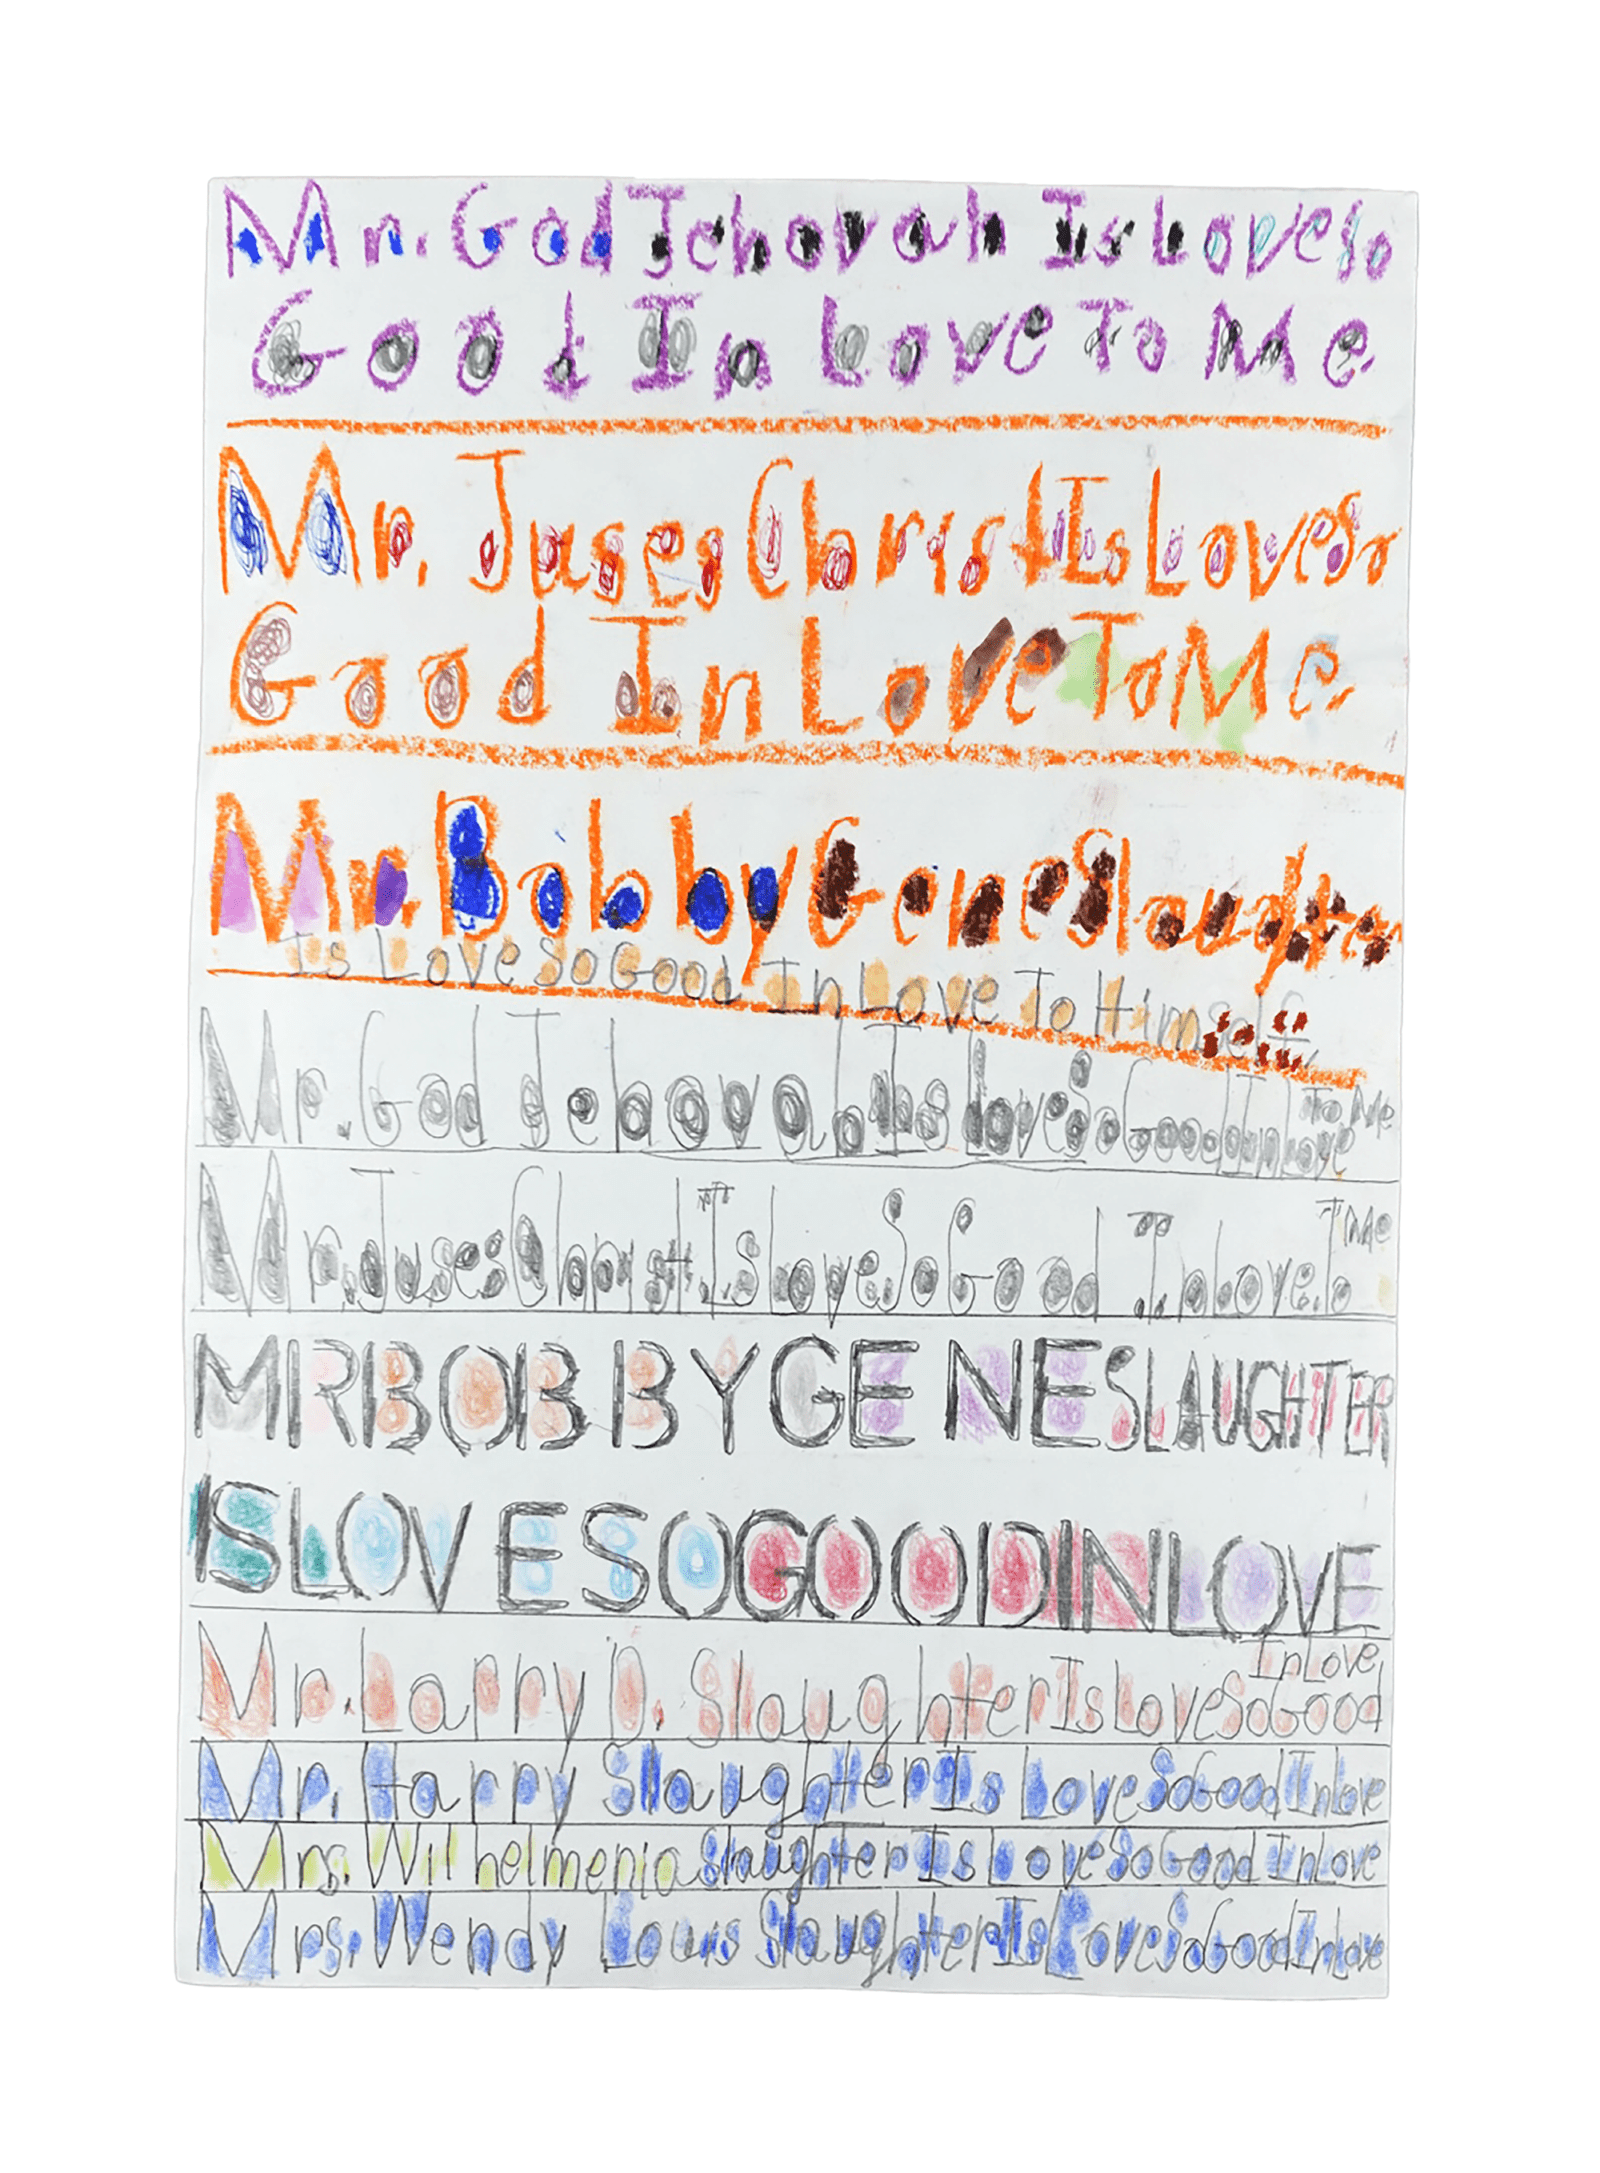 Mr. God Jehovah Is Love so
Good In Love To Me
Mr. Juses Christ Is Love So
Good In Love To Me
Mr. Bobby Gene Slaughter
Is Love So Good In Love To Himself.
Mr. God Jehovah Is Love So Good In Love To Me
Mr. Juses Christ Is Love So Good In Love To Me
MR BOBBY GENE SLAUGHTER
IS LOVE SO GOOD IN LOVE
Mr. Larry D. Slaughter Is Love So Good In Love
Mr. Harry Slaughter Is Love So Good In Love
Mrs. Wilhelmenia Slaughter Is Love So Good In Love
Mrs. Wendy Louis Slaughter Is Love So Good In Love